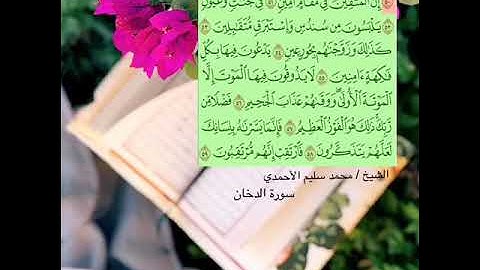 إِنَّ الْمُتَّقِينَ فِي مَقَامٍ أَمِينٍ ٥١ فِي جَنَّاتٍ وَعُيُونٍ ٥٢
يَلْبَسُونَ مِن سُندُسٍ وَإِسْتَبْرَقٍ مُّتَقَابِلِينَ ٥٣
كَذَٰلِكَ وَزَوَّجْنَاهُم بِحُورٍ عِينٍ ٥٤ يَدْعُونَ فِيهَا بِكُلِّ
فَاكِهَةٍ آمِنِينَ ٥٥ لَا يَذُوقُونَ فِيهَا الْمَوْتَ إِلَّا
الْمَوْتَةَ الْأُولَىٰ وَوَقَاهُمْ عَذَابَ الْجَحِيمِ ٥٦ فَضْلًا مِّن
رَّبِّكَ ذَٰلِكَ هُوَ الْفَوْزُ الْعَظِيمُ ٥٧ فَإِنَّمَا يَسَّرْنَاهُ بِلِسَانِكَ
لَعَلَّهُمْ يَتَذَكَّرُونَ ٥٨ فَارْتَقِبْ إِنَّهُم مُّرْتَقِبُونَ ٥٩
الشيخ / محمد سليم الأحمدي
سورة الدخان